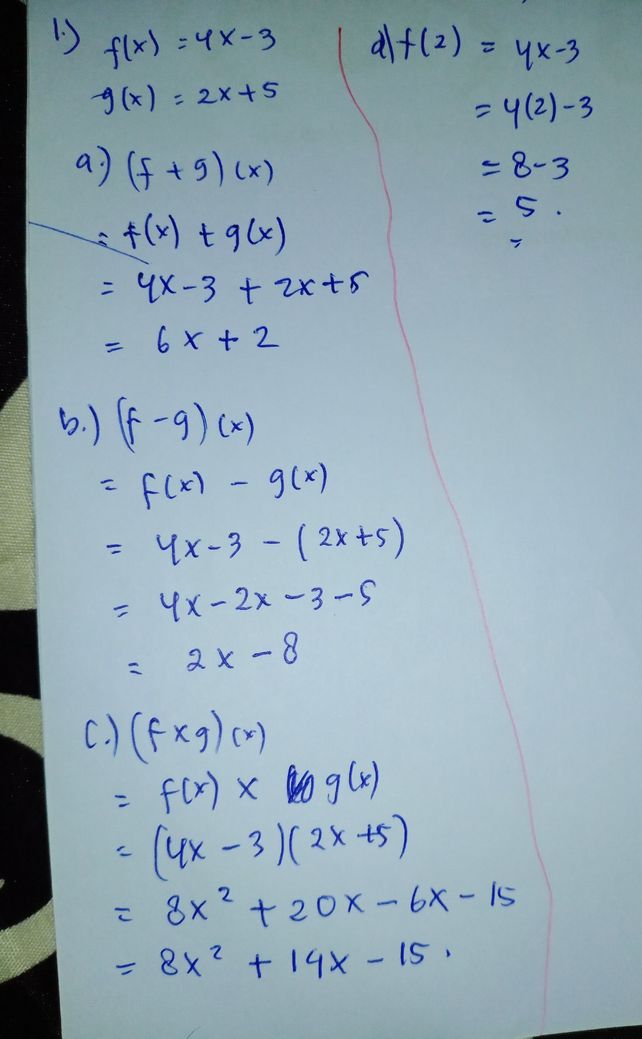 1.) f(x) = 4x-3
g(x) = 2x+5
a.) (f + g) (x)
= f(x) + g(x)
= 4x-3 + 2x+5
= 6x + 2
b.) (f - g) (x)
= f(x) - g(x)
= 4x-3 - (2x+5)
= 4x-2x-3-5
= 2x - 8
c.) (f x g) (x)
= f(x) x g(x)
= (4x - 3)(2x +5)
= 8x² + 20x - 6x - 15
= 8x² + 14x - 15.
d) f(2) = 4x-3
= 4(2)-3
= 8-3
= 5.